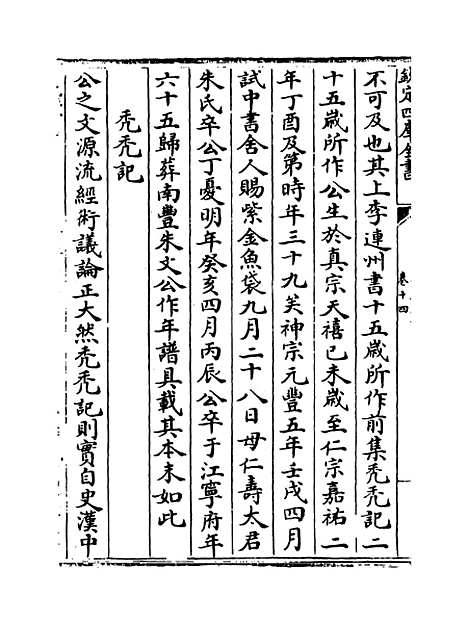 欽定四庫全書
卷十四
不可及也其上李連州書十五歲所作前集禿禿記二
十五歲所作公生於真宗天禧己未歲至仁宗嘉祐二
年丁酉及第時年三十九矣神宗元豐五年壬戌四月
試中書舍人賜紫金魚袋九月二十八日母仁壽太君
朱氏卒公丁憂明年癸亥四月丙辰公卒于江寧府年
六十五歸葬南豐朱文公作年譜具載其本末如此
禿禿記
公之文源流經術議論正大然禿禿記則實自史漢中